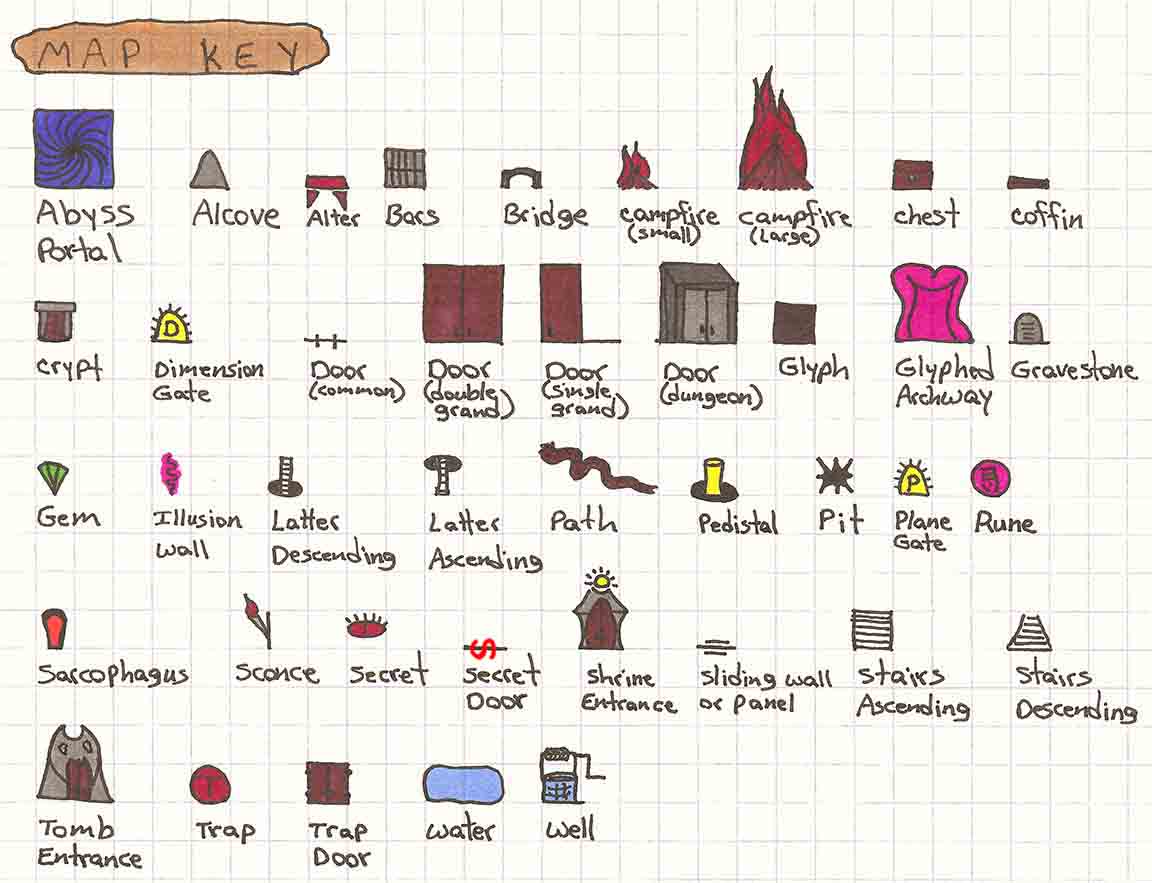 MAP KEY
Abyss
Portal
Alcove
Alter
Bars
Bridge
campfire
(small)
campfire
(Large)
chest
coffin
crypt
D
Dimension
Gate
Door
(common)
Door
(double
grand)
Door
(single
grand)
Door
(dungeon)
Glyph
Glyphed
Archway
Gravestone
Gem
Illusion
wall
Latter
Descending
Latter
Ascending
Path
Pedistal
Pit
P
Plane
Gate
Rune
Sarcophagus
Sconce
Secret
S
Secret
Door
Shrine
Entrance
Sliding wall
or Panel
Stairs
Ascending
Stairs
Descending
Tomb
Entrance
T
Trap
Trap
Door
water
well